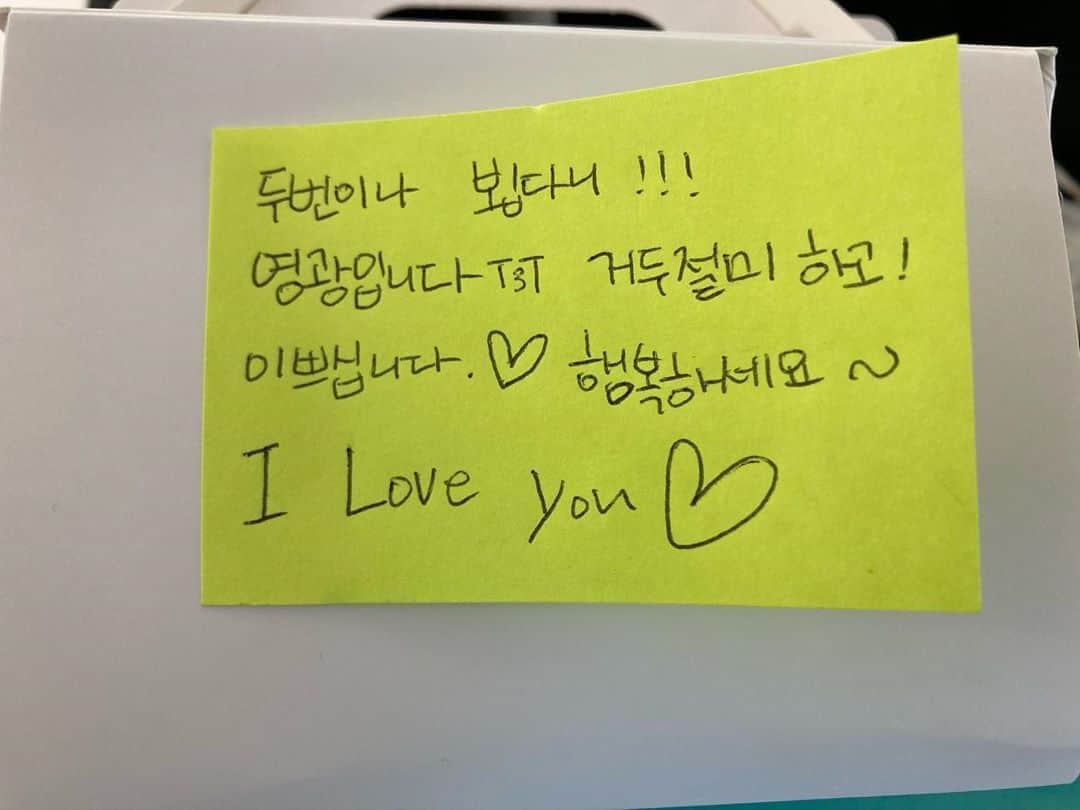 두번이나 뵙다니 !!!
영광입니다 T3T 거두절미 하고!
이쁘십니다. ♡ 행복하세요 ~
I Love you ♡